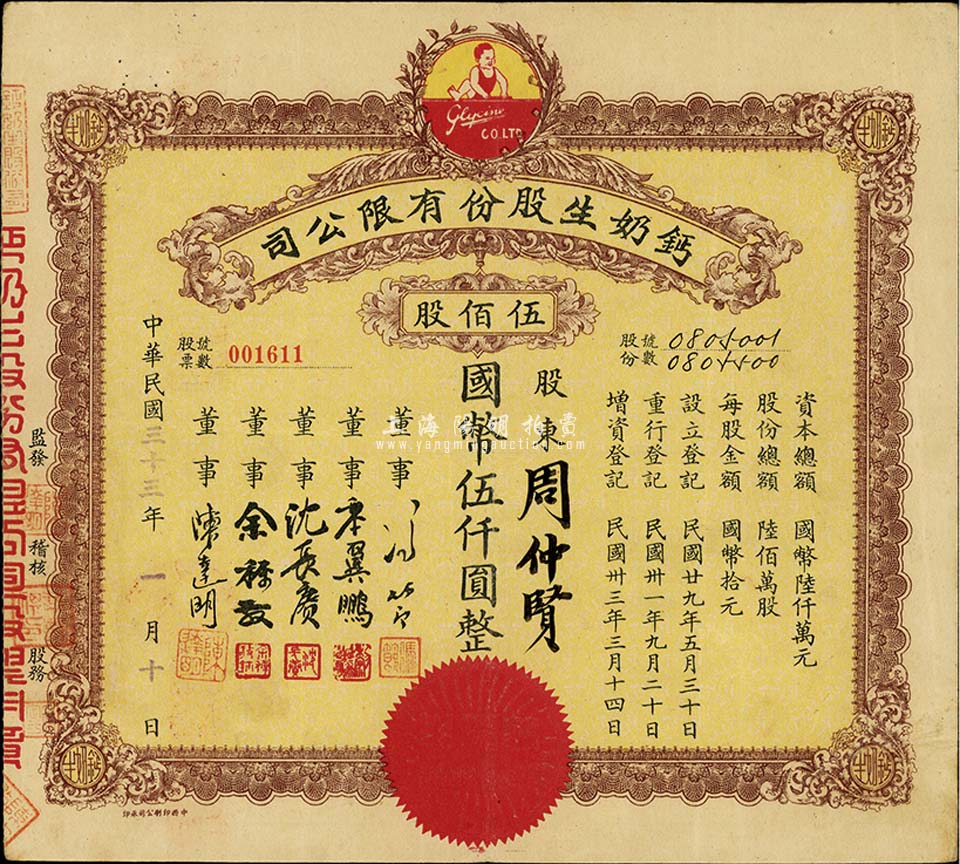 Glycine
CO.LTD
鈣奶生股份有限公司
伍佰股
股份號數 0805001
0805500
股票號數 001611
資本總額 國幣陸仟萬元
股份總額 陸佰萬股
每股金額 國幣拾元
設立登記 民國廿九年五月三十日
重行登記 民國卅一年九月二十日
增資登記 民國卅三年三月十四日
股東 周仲賢
國幣伍仟圓整
董事
董事 翼鵬
董事 沈長賡
董事 余
董事 陳達明
中華民國三十三年一月十日
監發
稽核
股務
鈣奶生
鈣奶生
鈣奶生
鈣奶生
上海陽明拍賣
www.yangmingauction.com